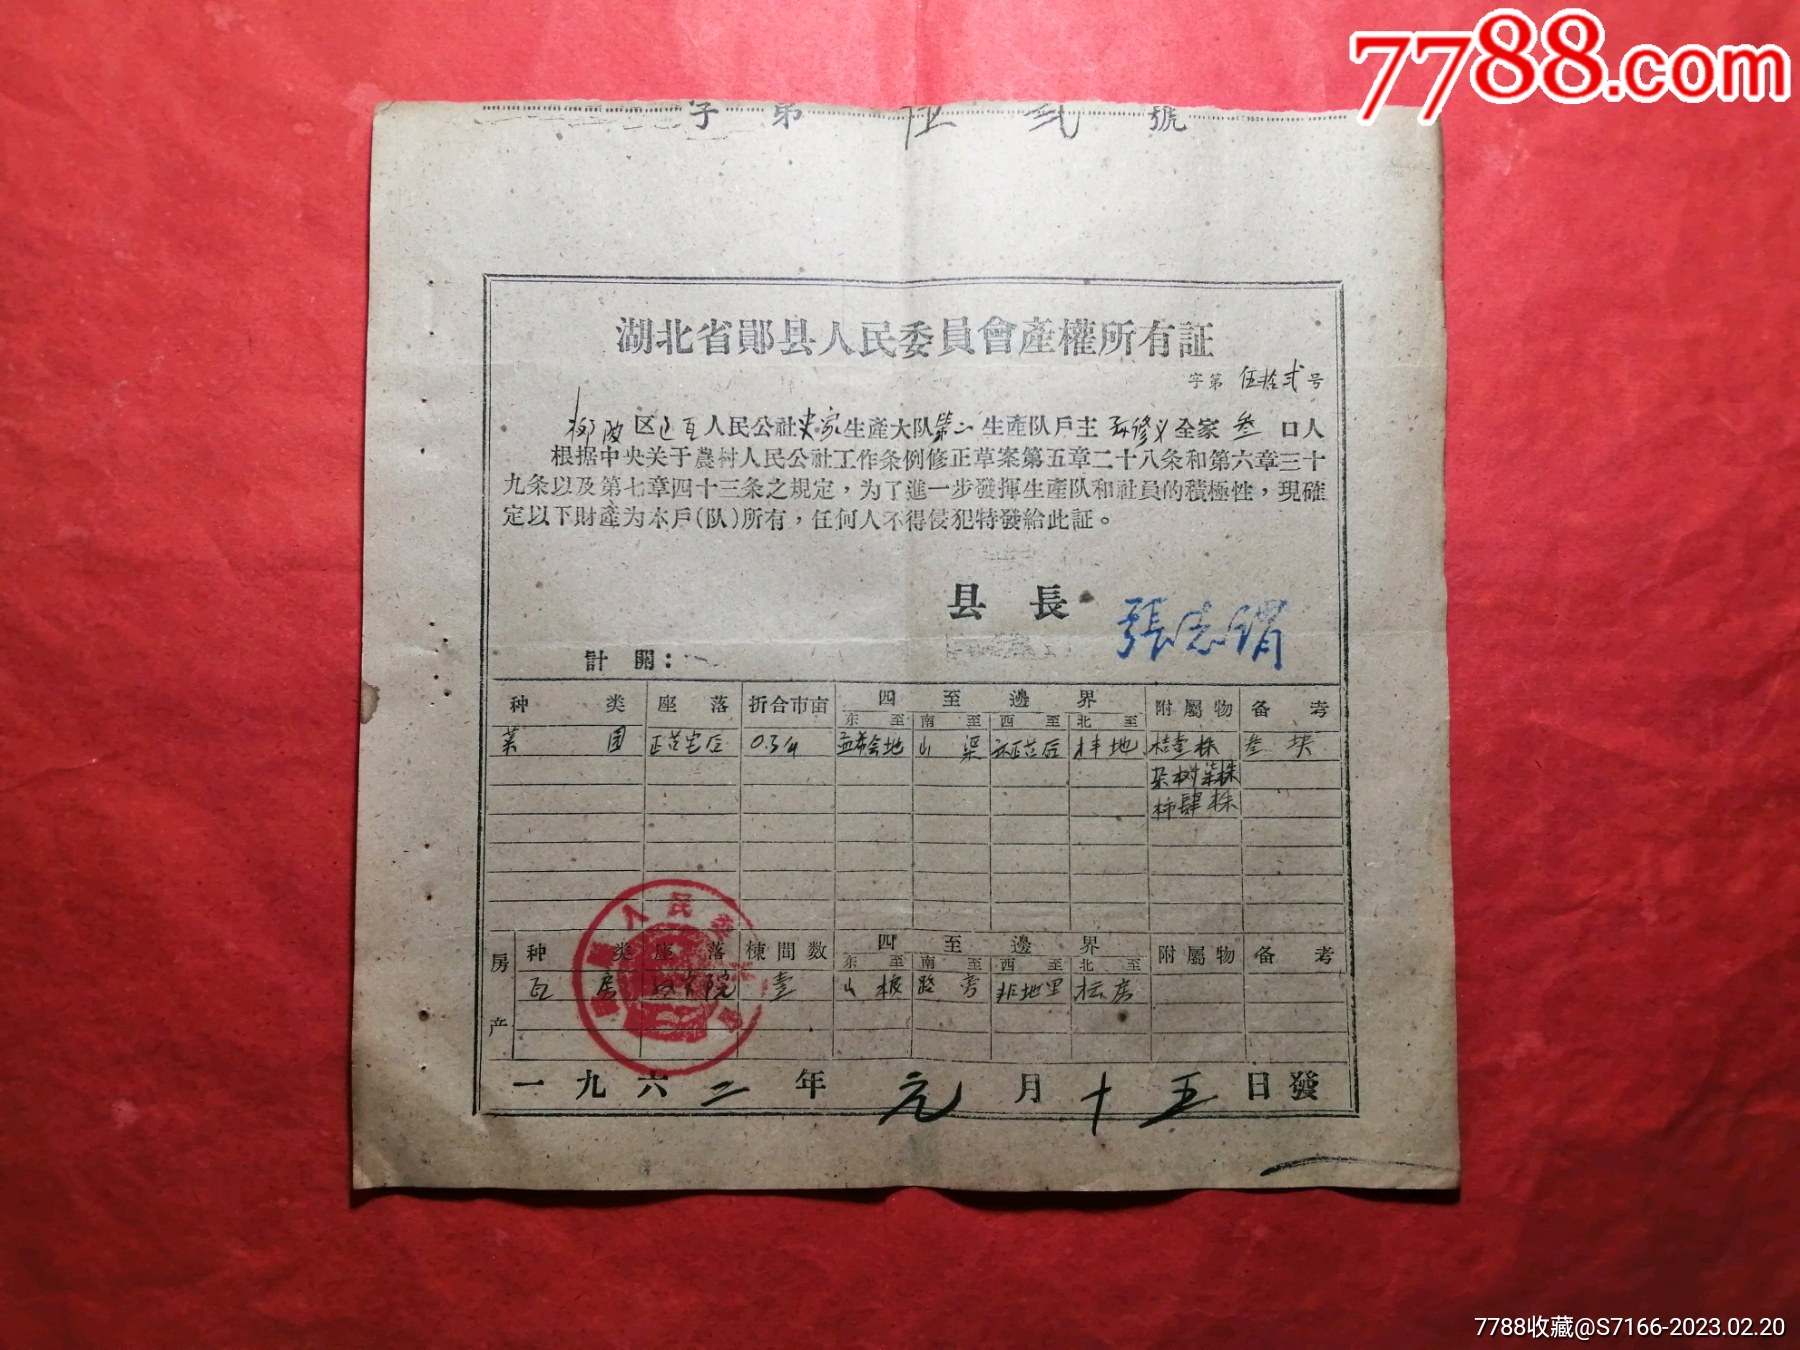 7788.com
字第 伍 弍 號
湖北省鄖县人民委員會產權所有証
字第 伍拾弍 号
柳陂区 人民公社史家生產大队第二生產队戶主孙修义全家叁口人
根据中央关于農村人民公社工作条例修正草案第五章二十八条和第六章三十
九条以及第七章四十三条之規定，为了進一步發揮生產队和社員的積極性，現確
定以下財產为本戶(队)所有，任何人不得侵犯特發給此証。
县長 張志
計開：
种类 座落 折合市亩 四至邊界 附屬物 备考
东至 南至 西至 北至
菜园 0.3 山渠 叁块
杂树 株
柿肆株
房产 种类 座落 棟間数 四至邊界 附屬物 备考
东至 南至 西至 北至
瓦房 院 壹 山根 路旁
一九六二年元月十五日發
7788收藏@S7166-2023.02.20